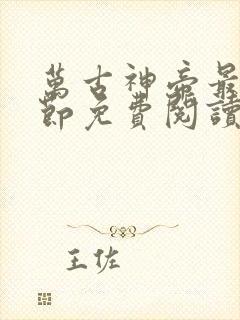 萬古神帝最
節免費閱讀
王佐